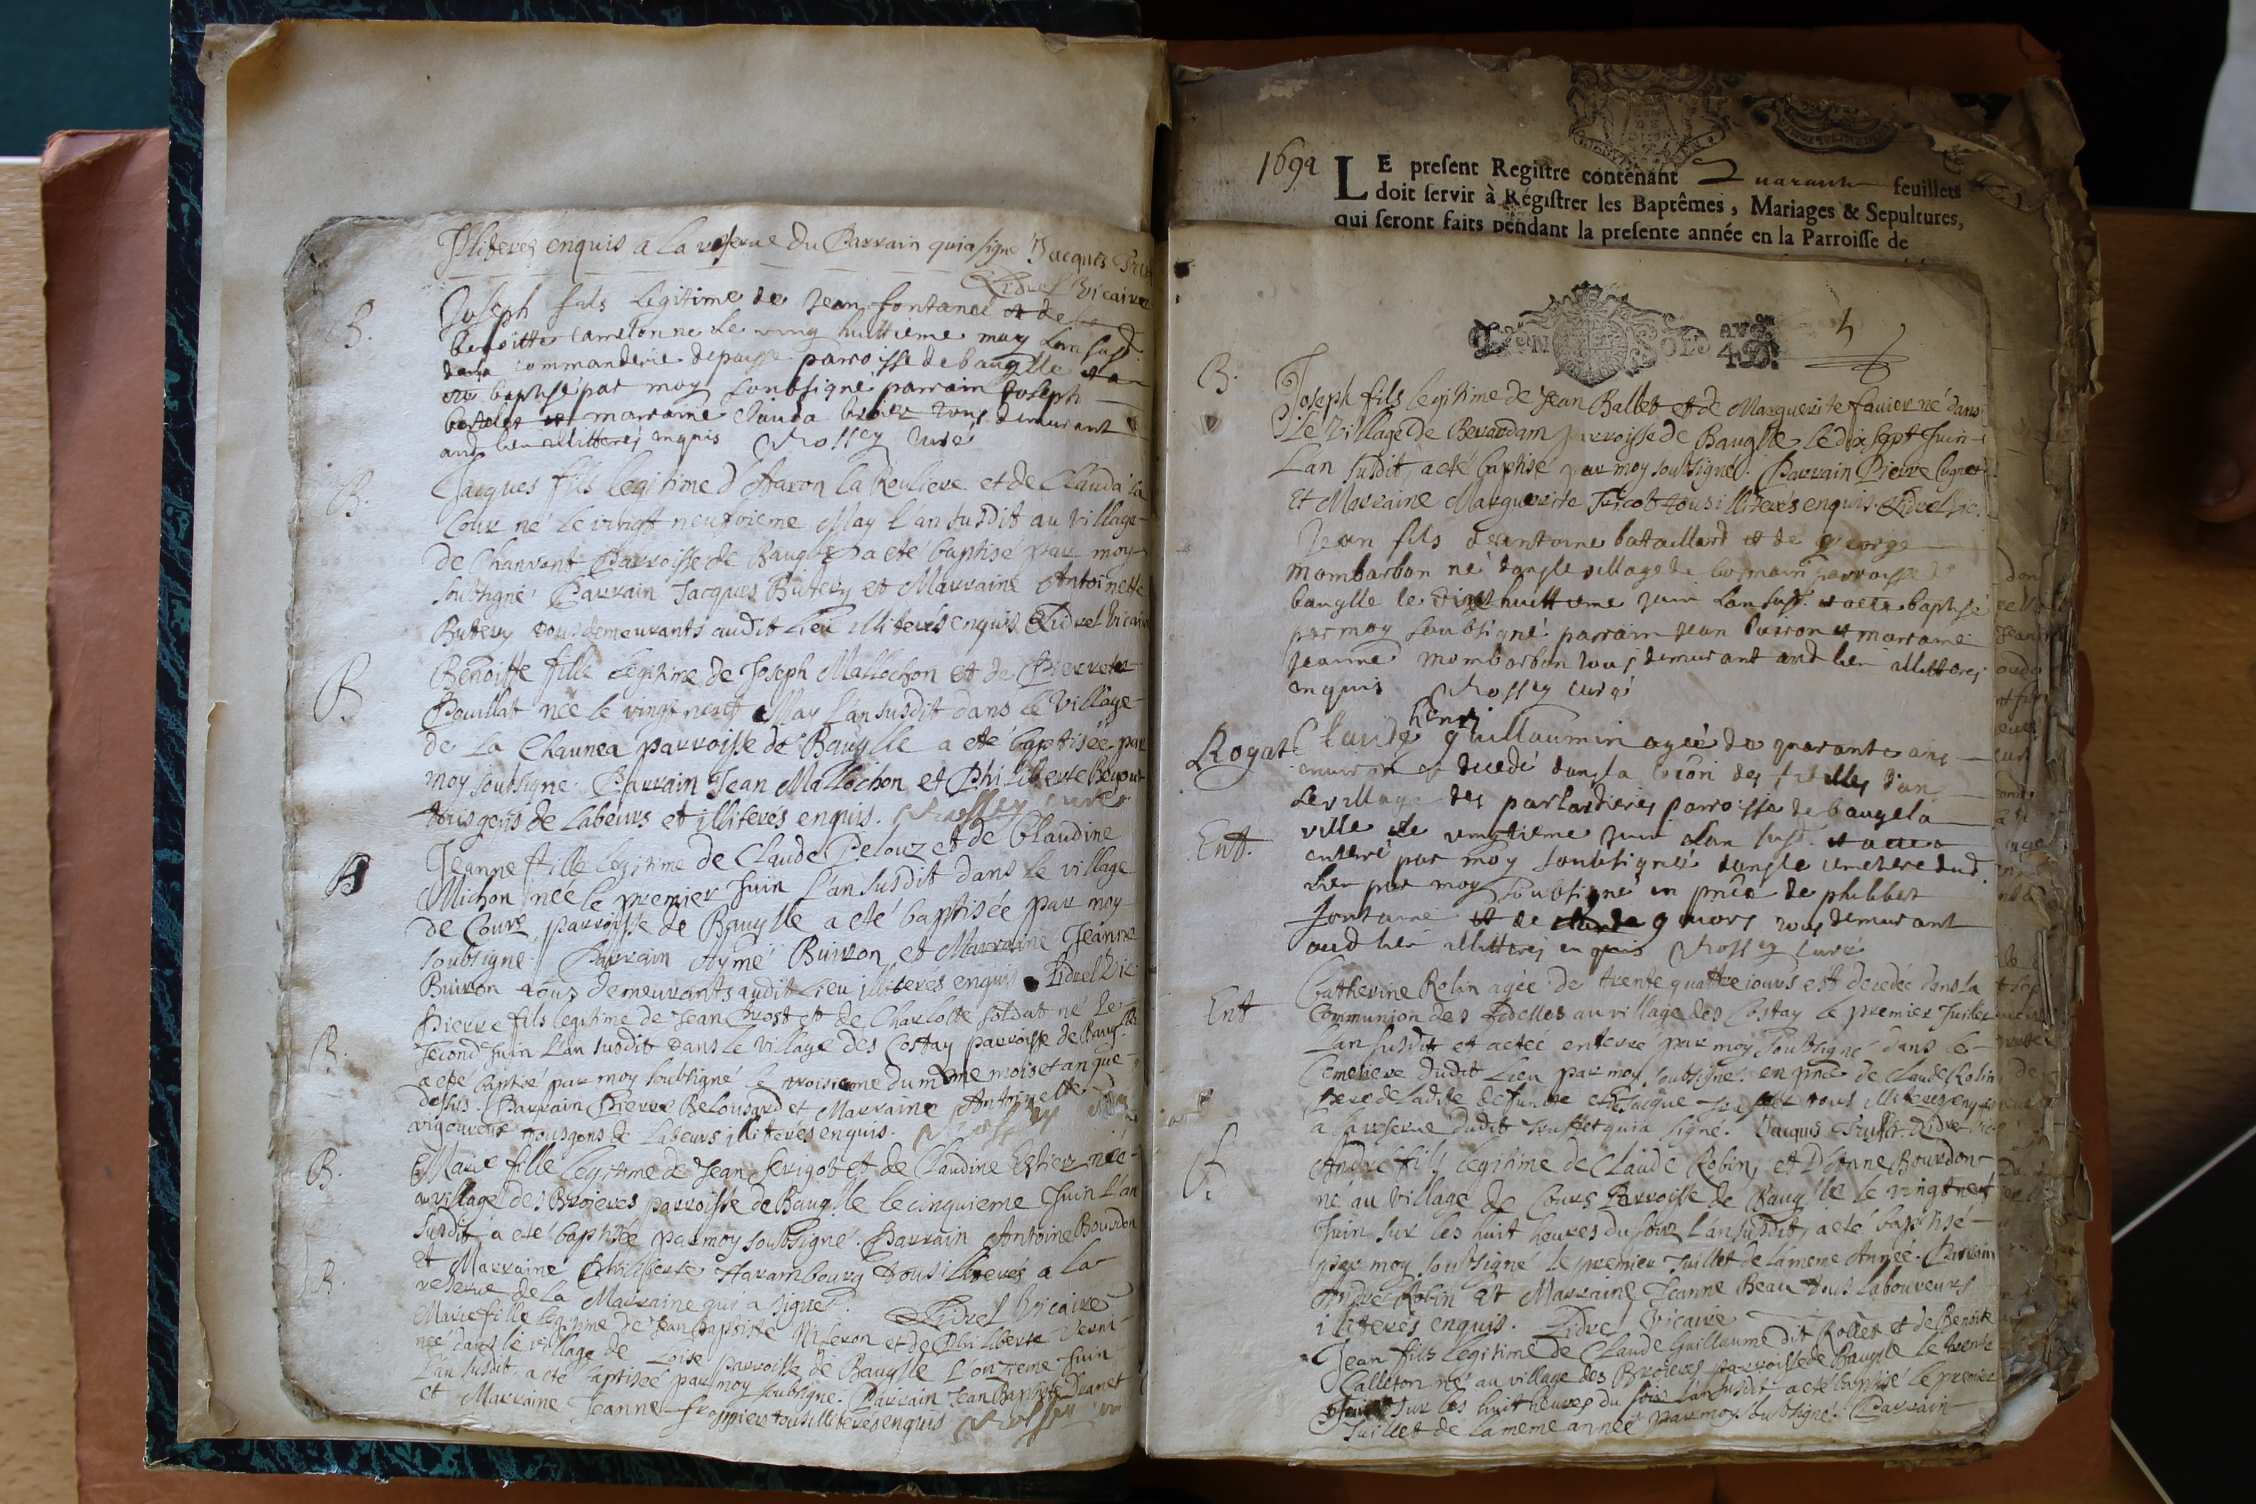 Illiterés enquis a la reserve du Parrain qui a signé Jacques
Lidrel Vicaire
B.
Joseph fils legitime de Jean fontanel et de
benoitte le ving huittieme may lan susd.
commanderie de parroisse de baugîlle et a
eté baptisé par moy soubsigné parrain Joseph
et marraine Clauda tous demeurant
aud lieu illitterés enquis Rossey curé
B.
Jacques fils legitime d'Aaron la Rouliere et de Clauda la
Cour né le vingt neuvvieme May l'an susdit au village
de Chanvont Parroisse de Baugîlle a eté baptisé par moy
soubsigné Parrain Jacques Butery et Marraine Antoinette
Butery tous demeurants audit Lieu illiterés enquis Lidrel Vicaire
B
Benoitte fille legitime de Joseph Mallochon et de Pierrette
Pouillat née le vingt neuf May l'an susdit dans le Village
de La Chaunea parroisse de Baugîlle a eté baptisée par
moy soubsigné. Parrain Jean Mallochon et Philiberte
tous gens de Labeurs et illiterés enquis. Rossey curé
B
Jeanne fille legitime de Claude Pelouz et de Claudine
Michon née le premier Juin l'an susdit dans le village
de Cours parroisse de Baugîlle a eté baptisée par moy
soubsigné. Parrain Aymé Buiron et Marraine Jeanne
Buiron tous demeurants audit Lieu illiterés enquis Lidrel Vic
B.
Pierre fils legitime de Jean Prost et de Charlotte Soldat né le
second Juin l'an susdit dans le village des Costay parroisse de Baugîlle
a eté baptisé par moy soubsigné le troisieme du meme mois et an que
dessus. Parrain Pierre Belousard et Marraine Antoinette
vigoureux tous gens de Labeurs illiterés enquis. Rossey curé
B.
Marie fille legitime de Jean Serigot et de Claudine Estier née
au village des Brojeres parroisse de Baugîlle le cinquieme Juin l'an
susdit a eté baptisée par moy soubsigné. Parrain Antoine Bourdon
et Marraine Philiberte Harambourg tous illiterés a la
reserve de la Marraine qui a signé. Lidrel Vicaire
B.
Marie fille legitime de Jean Baptiste Niseron et de Philiberte
née dans le village de Loise parroisse de Baugîlle l'onzieme Juin
l'an susdit a eté baptisée par moy soubsigné. Parrain Jean Baptiste Dranet
et Marraine Jeanne tous illiterés enquis Rossey curé
1692
LE present Registre contenant Quarante feuillets
doit servir à Régistrer les Baptêmes, Mariages & Sepultures,
qui seront faits pendant la presente année en la Parroisse de
B.
Joseph fils legitime de Jean Ballet et de Marguerite favier né dans
Le Village de Berardam parroisse de Baugîlle le dix sept Juin
L'an susdit a eté baptisé par moy soubsigné. Parrain Pierre Cugnet
Et Marraine Marguerite Tricot tous illiterés enquis. Lidrel vic.
Jean fils d'antoine bataillard et de george
mombarbon né dans le village de parroisse de
baugîlle le dixhuittieme juin lan susd. et a eté baptisé
par moy soubsigné parrain Jean Buiron et marraine
jeanne mombarbon tous demeurant aud lieu illitterés
enquis Rossey curé
Rogat
henri
Claude guillaumin agée de quarante ans
environ est decedé dans la des fidelles dans
le village des parlardieres parroisse de baugela
Ent.
ville le vingtieme juin lan susd. et a eté
enterré par moy soubsigné dans le cimetiere dud
lieu par moy soubsigné en pnce de philibert
fontaine et de tous demeurant
aud lieu illitterés enquis Rossey curé
Ent
Catherine Robin agée de trente quattre jours est decedée dans la
Communion des Fidelles au village des Costay le premier Juillet
L'an susdit et a eté enterré par moy soubsigné dans le
Cemetiere dudit Lieu par moy soubsigné. en pnce de Claude Robin
Pere de Ladite defunte et Jacque tous illiterés enquis
a la reserve dudit qui a signé. Jacques Lidrel
Andre fils legitime de Claude Robin, et D'Anne Bourdon
né au village de Cours Parroisse de Baugîlle le vingt neuf
Juin sur les huit heures du soir l'an susdit, a eté baptisé
par moy soubsigné le premier Juillet de la meme Année. Parrain
Andre Robin Et Marraine Jeanne Beau tous Laboureurs
iliterés enquis. Lidrel Vicaire
Jean fils legitime de Claude Guillaume dit Rollet et de Benoite
Calleton né au village des Brojeres parroisse de Baugîlle le trente
Juin sur les huit heures du soir l'an susdit a eté baptisé le premier
Juillet de la meme année par moy soubsigné. Parrain